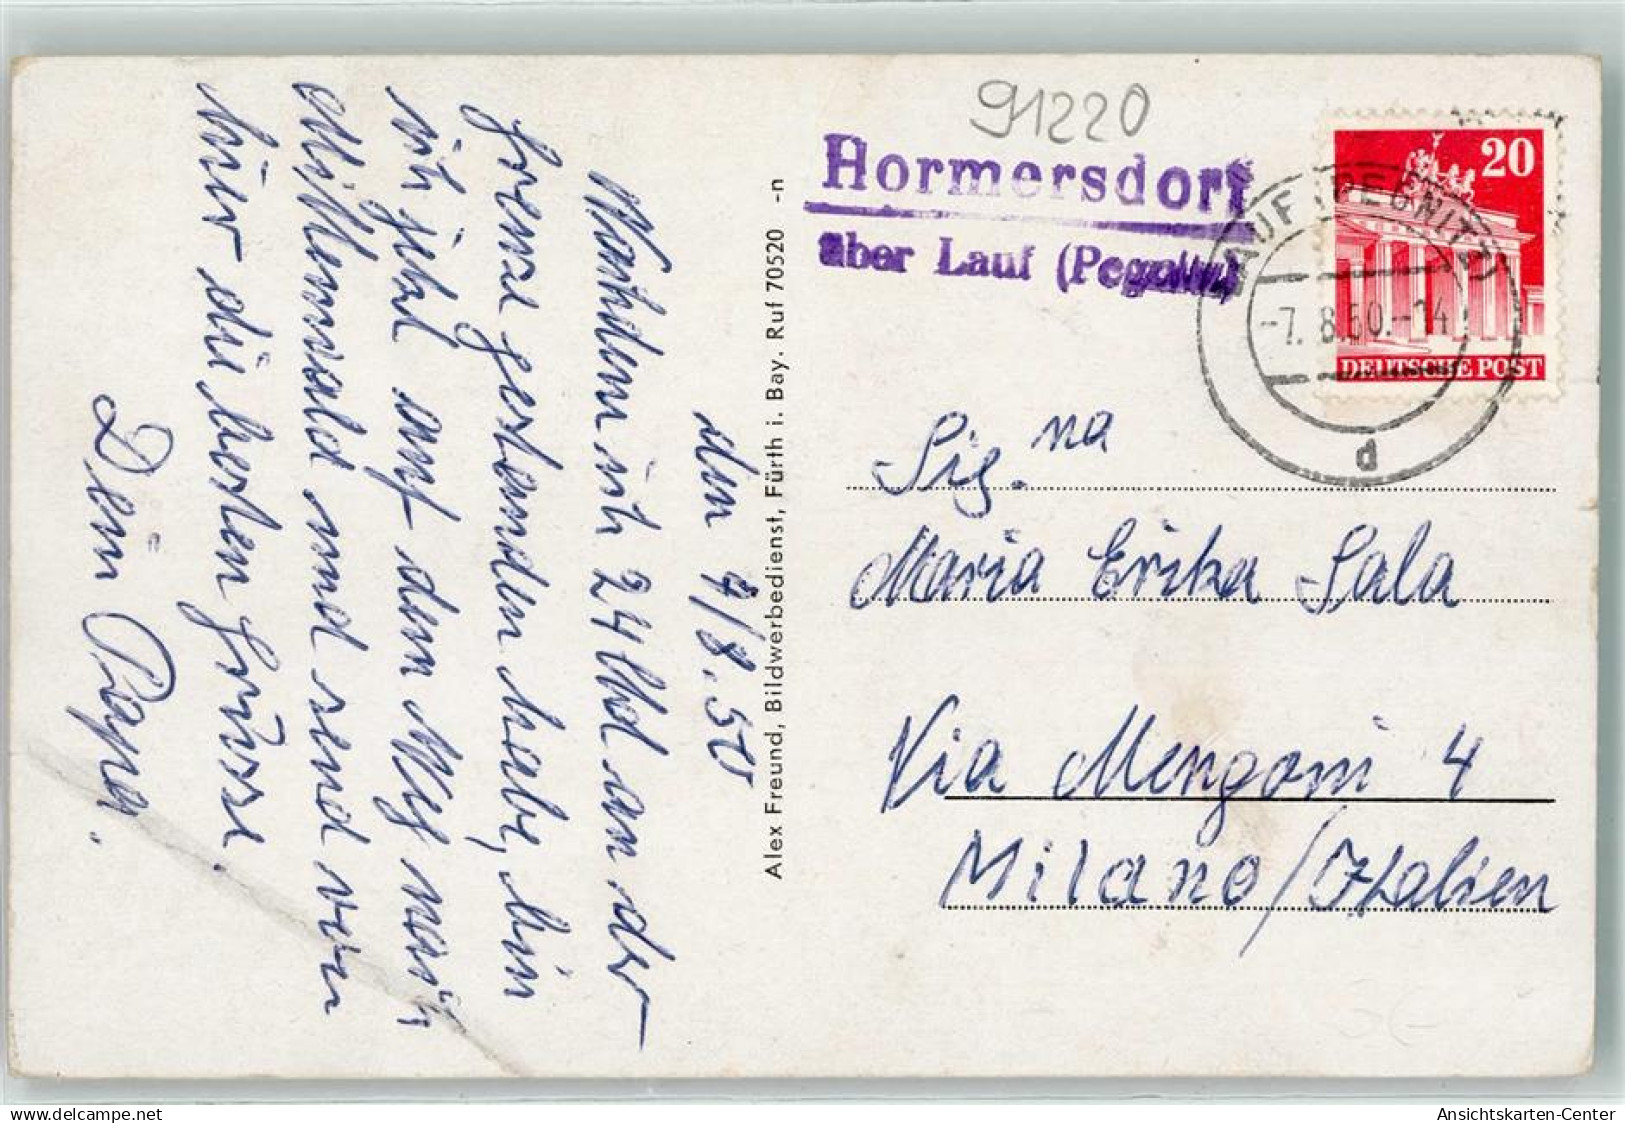 den 7/8.50
Nachdem ich 24 Std an der
Grenze gestanden habe, bin
ich jetzt auf dem Weg nach
Mittenwald und send von
hier die besten Grüsse.
Dein Papa.
Alex Freund, Bildwerbedienst, Fürth i. Bay. Ruf 70520 -n
91220
Hormersdorf
über Lauf (Pegnitz)
20
DEUTSCHE POST
LAUF (PEGNITZ)
-7. 8.50.-14
d
Sig.na
Maria Erika Sala
Via Mengoni 4
Milano/Italien
Ansichtskarten-Center
www.delcampe.net